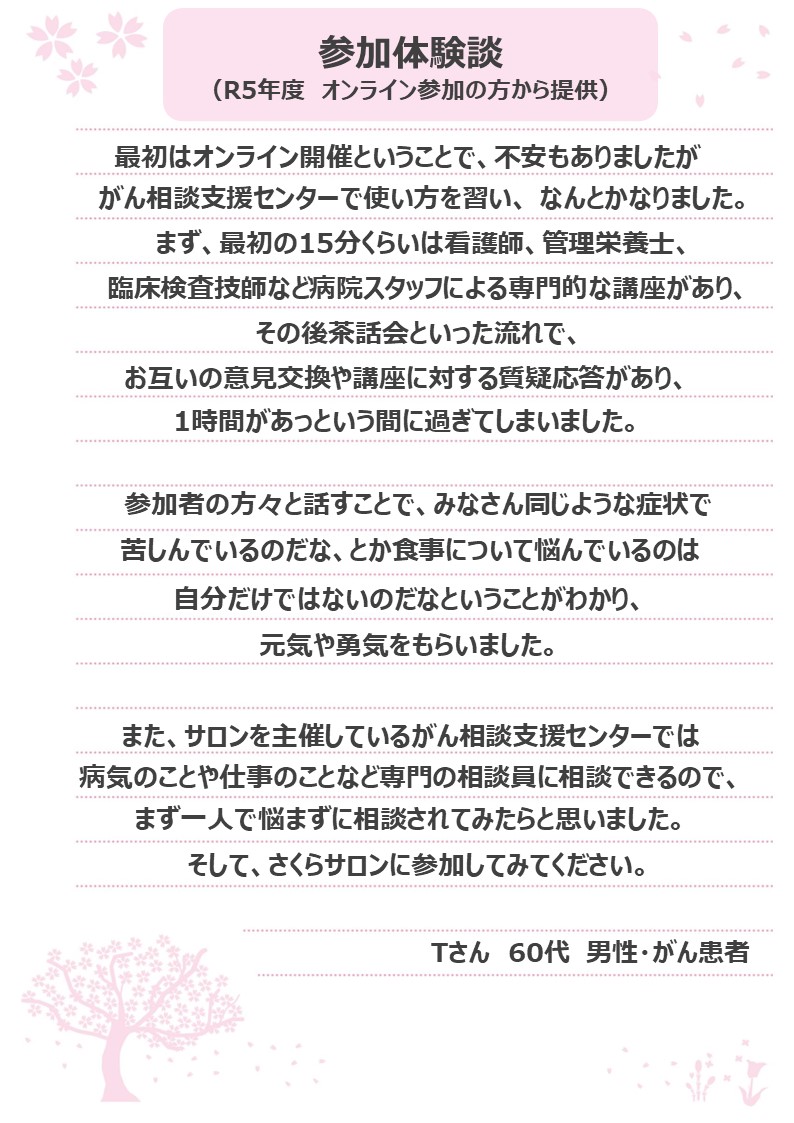 参加体験談
（R5年度　オンライン参加の方から提供）
最初はオンライン開催ということで、不安もありましたが
がん相談支援センターで使い方を習い、なんとかなりました。
まず、最初の15分くらいは看護師、管理栄養士、
臨床検査技師など病院スタッフによる専門的な講座があり、
その後茶話会といった流れで、
お互いの意見交換や講座に対する質疑応答があり、
1時間があっという間に過ぎてしまいました。
参加者の方々と話すことで、みなさん同じような症状で
苦しんでいるのだな、とか食事について悩んでいるのは
自分だけではないのだなということがわかり、
元気や勇気をもらいました。
また、サロンを主催しているがん相談支援センターでは
病気のことや仕事のことなど専門の相談員に相談できるので、
まず一人で悩まずに相談されてみたらと思いました。
そして、さくらサロンに参加してみてください。
Tさん　60代　男性・がん患者